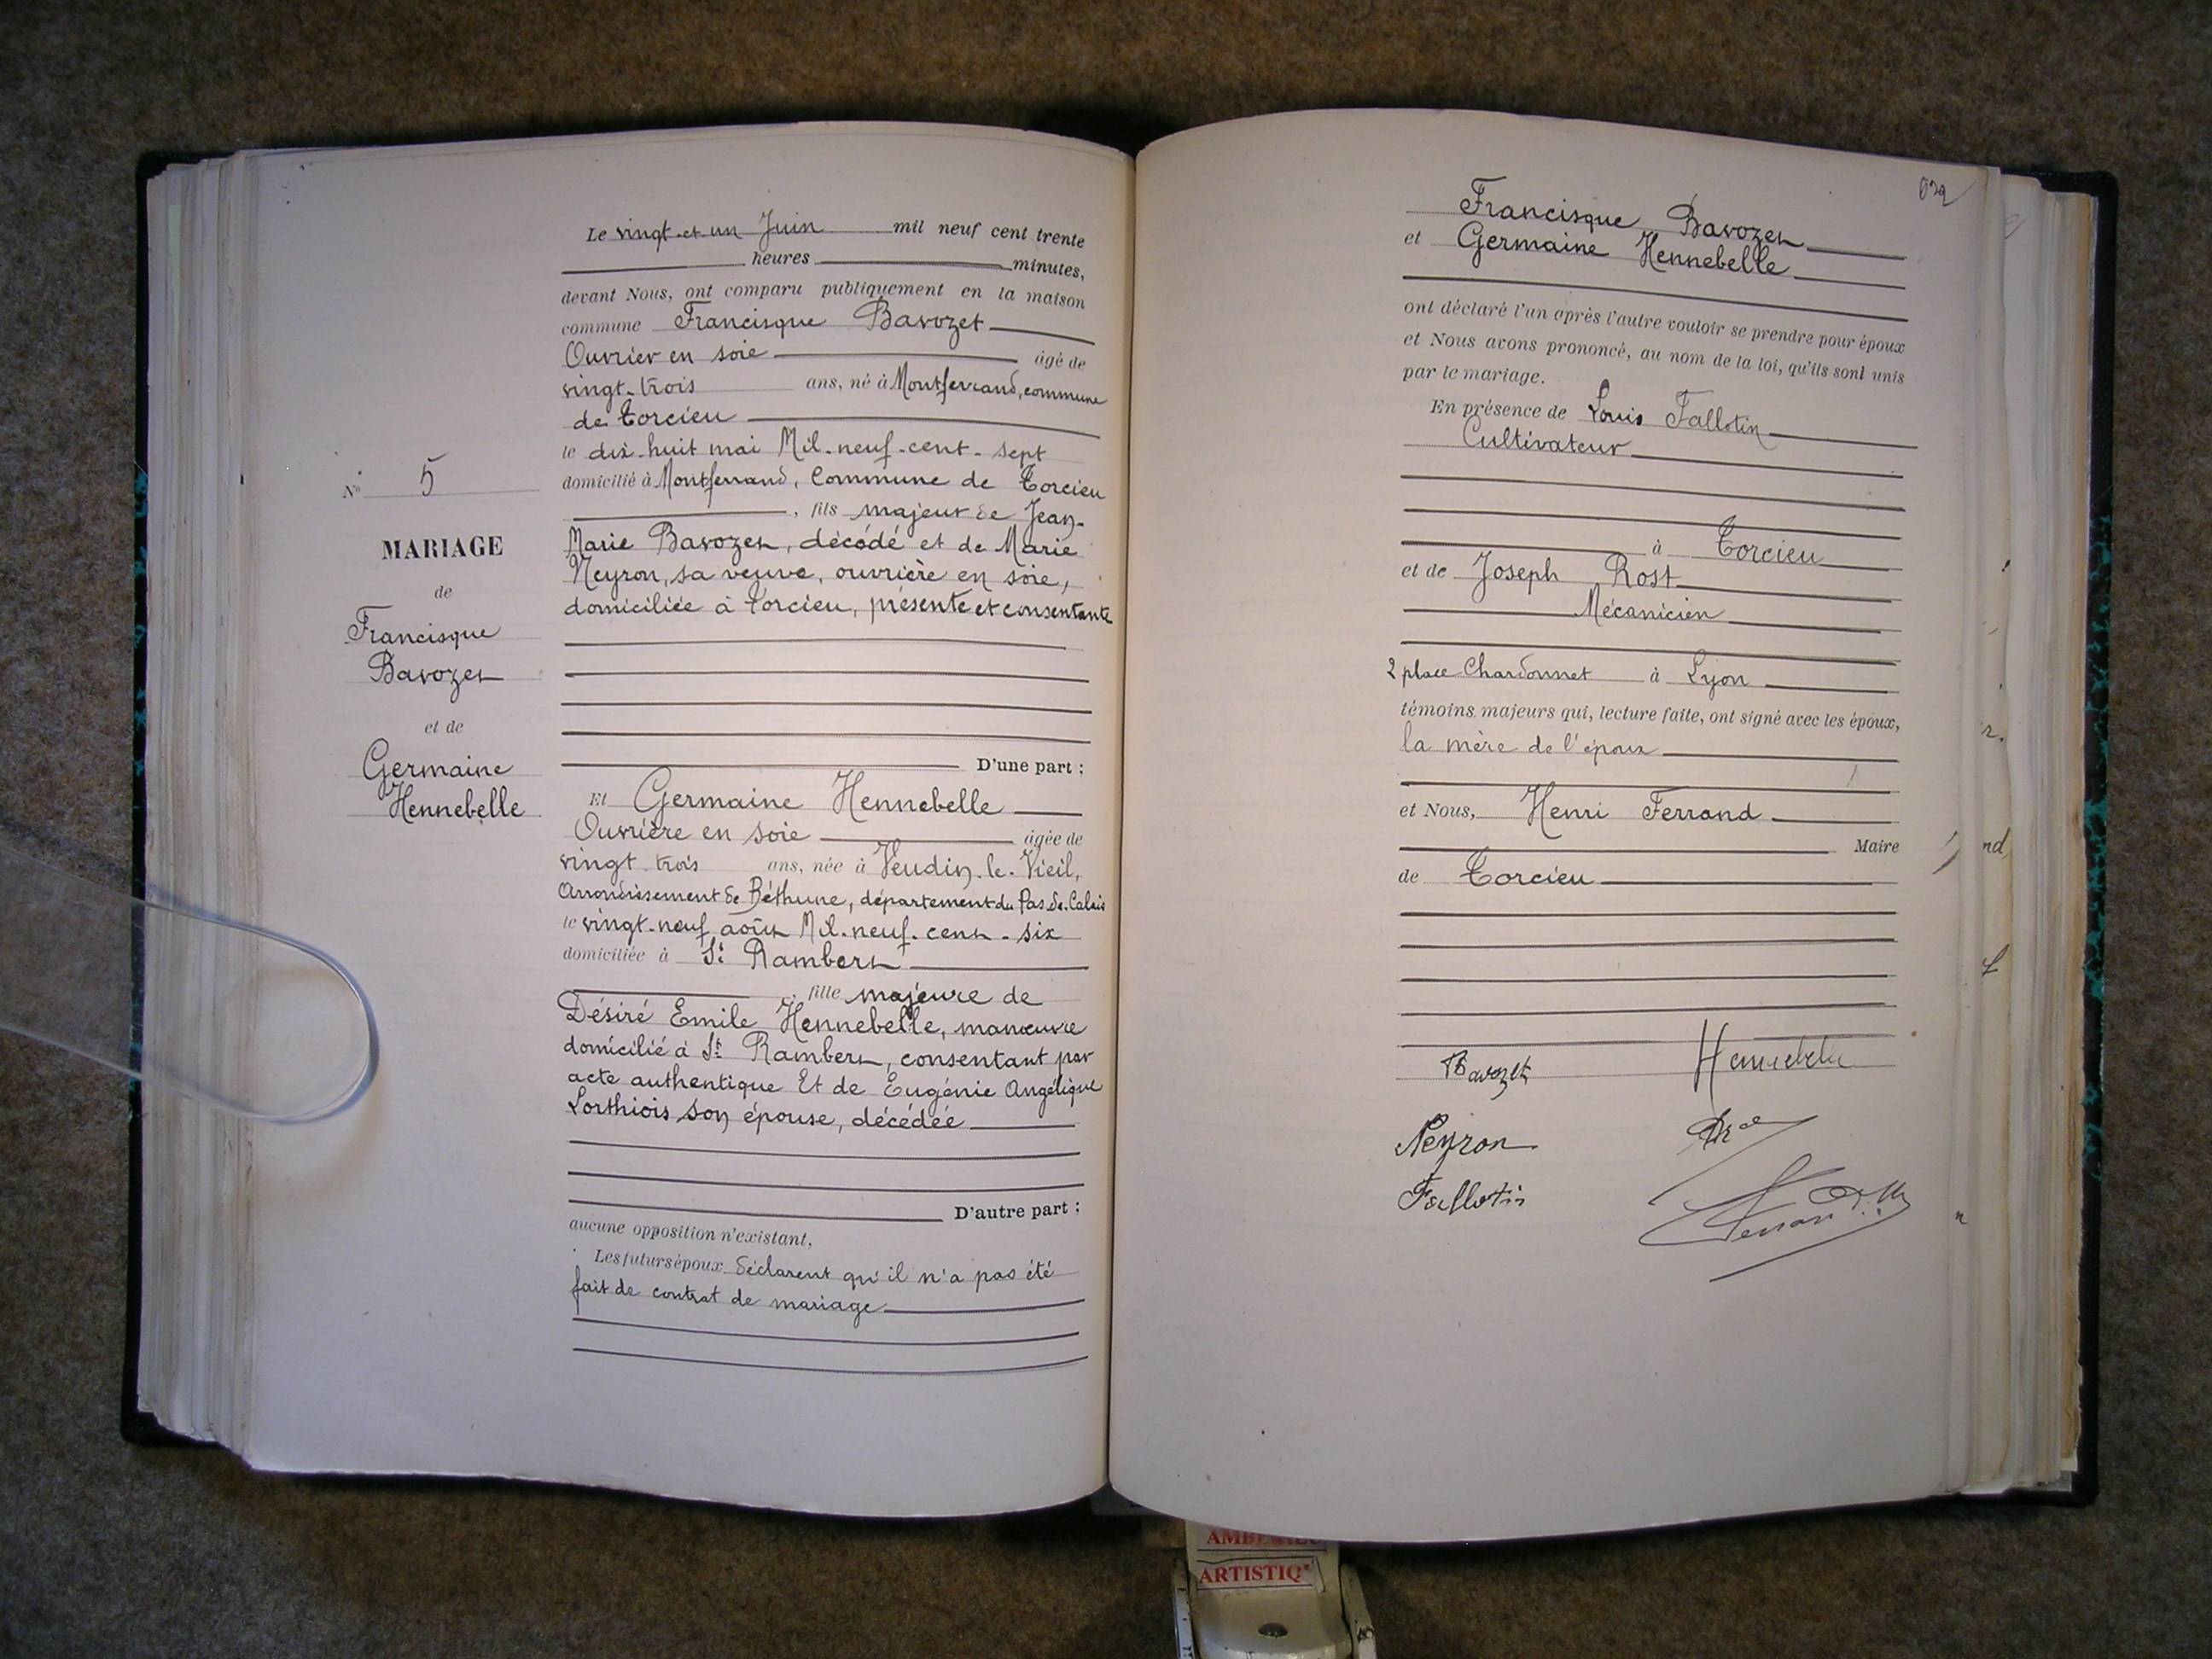 Le vingt-et-un Juin mil neuf cent trente
heures minutes,
devant Nous, ont comparu publiquement en la maison
commune Francisque Bavozet
Ouvrier en soie âgé de
vingt-trois ans, né à Montferrand, commune
de Torcieu
le dix-huit mai Mil-neuf-cent-sept
domicilié à Montferrand, Commune de Torcieu
, fils majeur de Jean-
Marie Bavozet, décédé et de Marie
Neyron, sa veuve, ouvrière en soie,
domiciliée à Torcieu, présente et consentante
D'une part ;
Et Germaine Hennebelle
Ouvrière en soie âgée de
vingt-trois ans, née à Vendin-le-Vieil,
Arrondissement de Béthune, département du Pas-de-Calais
le vingt-neuf août Mil-neuf-cent-six
domiciliée à St Rambert
, fille majeure de
Désiré Emile Hennebelle, manœuvre
domicilié à St Rambert, consentant par
acte authentique Et de Eugénie Angélique
Lorthiois son épouse, décédée
D'autre part ;
aucune opposition n'existant,
Les futurs époux déclarent qu'il n'a pas été
fait de contrat de mariage
N° 5
MARIAGE
de
Francisque
Bavozet
et de
Germaine
Hennebelle
Francisque Bavozet
et Germaine Hennebelle
ont déclaré l'un après l'autre vouloir se prendre pour époux
et Nous avons prononcé, au nom de la loi, qu'ils sont unis
par le mariage.
En présence de Louis Fallotin
Cultivateur
à Torcieu
et de Joseph Rost
Mécanicien
2 place Chardonnet à Lyon
témoins majeurs qui, lecture faite, ont signé avec les époux,
la mère de l'époux
et Nous, Henri Ferrand
Maire
de Torcieu
Bavozet Hennebelle
Neyron
Fallotin Ferrand
ARTISTIQ